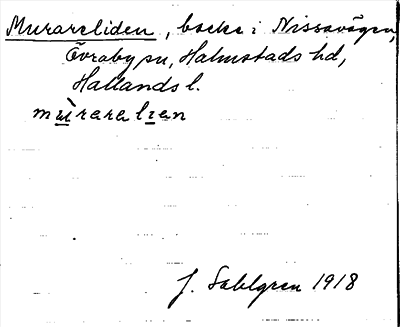 Murareliden, backe i Nissavägen,
Övraby sn, Halmstads hd,
Hallands l.
mùrarelien
J. Sahlgren 1918